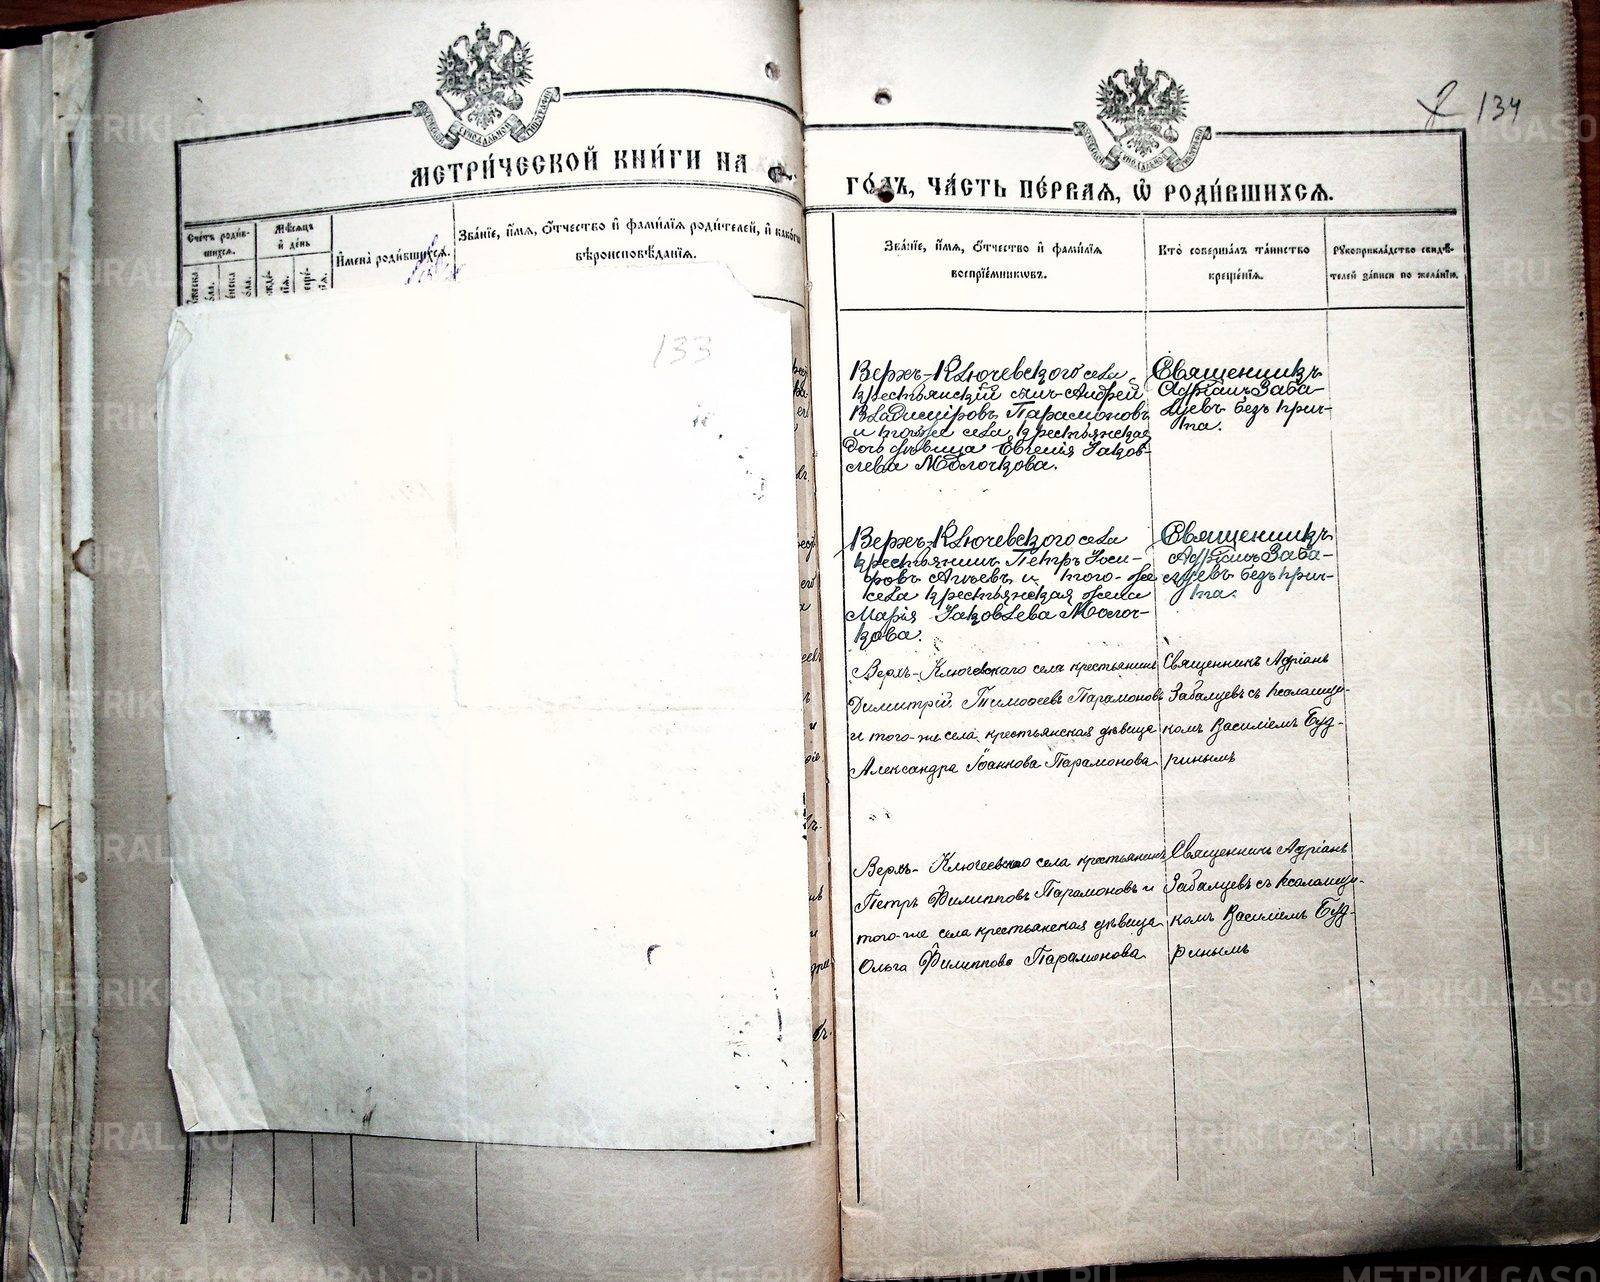 134
МЕТРИ́ЧЕСКОЙ КНИ́ГИ НА
ГО́ДЪ, ЧА́СТЬ ПЕ́РВАЯ, Ѡ҆ РОДИ́ВШИХСЯ.
Сче́тъ роди́в-
шихся.
Мѣ́сяцъ
и҆ де́нь
И҆мена̀ роди́вшихся.
Зва́нїе, и҆́мя, ѻ҆́тчество и҆ фами́лїя роди́телей, и҆ како́гѡ
вѣроисповѣ́данїя.
Зва́нїе, и҆́мя, ѻ҆́тчество и҆ фами́лїя
воспрїе́мникѡвъ.
Кто̀ соверша́лъ та́инство
креще́нїя.
Рꙋкоприкла́дство свидѣ́-
телей за́писи по жела́нїю.
133
Верхъ-Ключевского села
крестьянскій сынъ Андрей
Владиміровъ Парамоновъ
и того же села крестьянская
дочь дѣвица Евгенія Іаков-
лева Молочкова.
Священникъ
Адріанъ Заба-
луевъ безъ прич-
та.
Верхъ-Ключевского села
крестьянинъ Петръ Іоси-
фовъ и того-же
села крестьянская жена
Марія Іаковлева Молоч-
кова.
Священникъ
Адріанъ Заба-
луевъ безъ прич-
та.
Верхъ-Ключевскаго села крестьянинъ
Димитрій Тимоѳеевъ Парамоновъ
и того-же села крестьянская дѣвица
Александра Іоаннова Парамонова
Священникъ Адріанъ
Забалуевъ съ псаломщи-
комъ Василіемъ Буд-
ринымъ
Верхъ-Ключевскаго села крестьянинъ
Петръ Филипповъ Парамоновъ и
того-же села крестьянская дѣвица
Ольга Филиппова Парамонова
Священникъ Адріанъ
Забалуевъ съ псаломщи-
комъ Василіемъ Буд-
ринымъ
METRIKI.GASO-URAL.RU